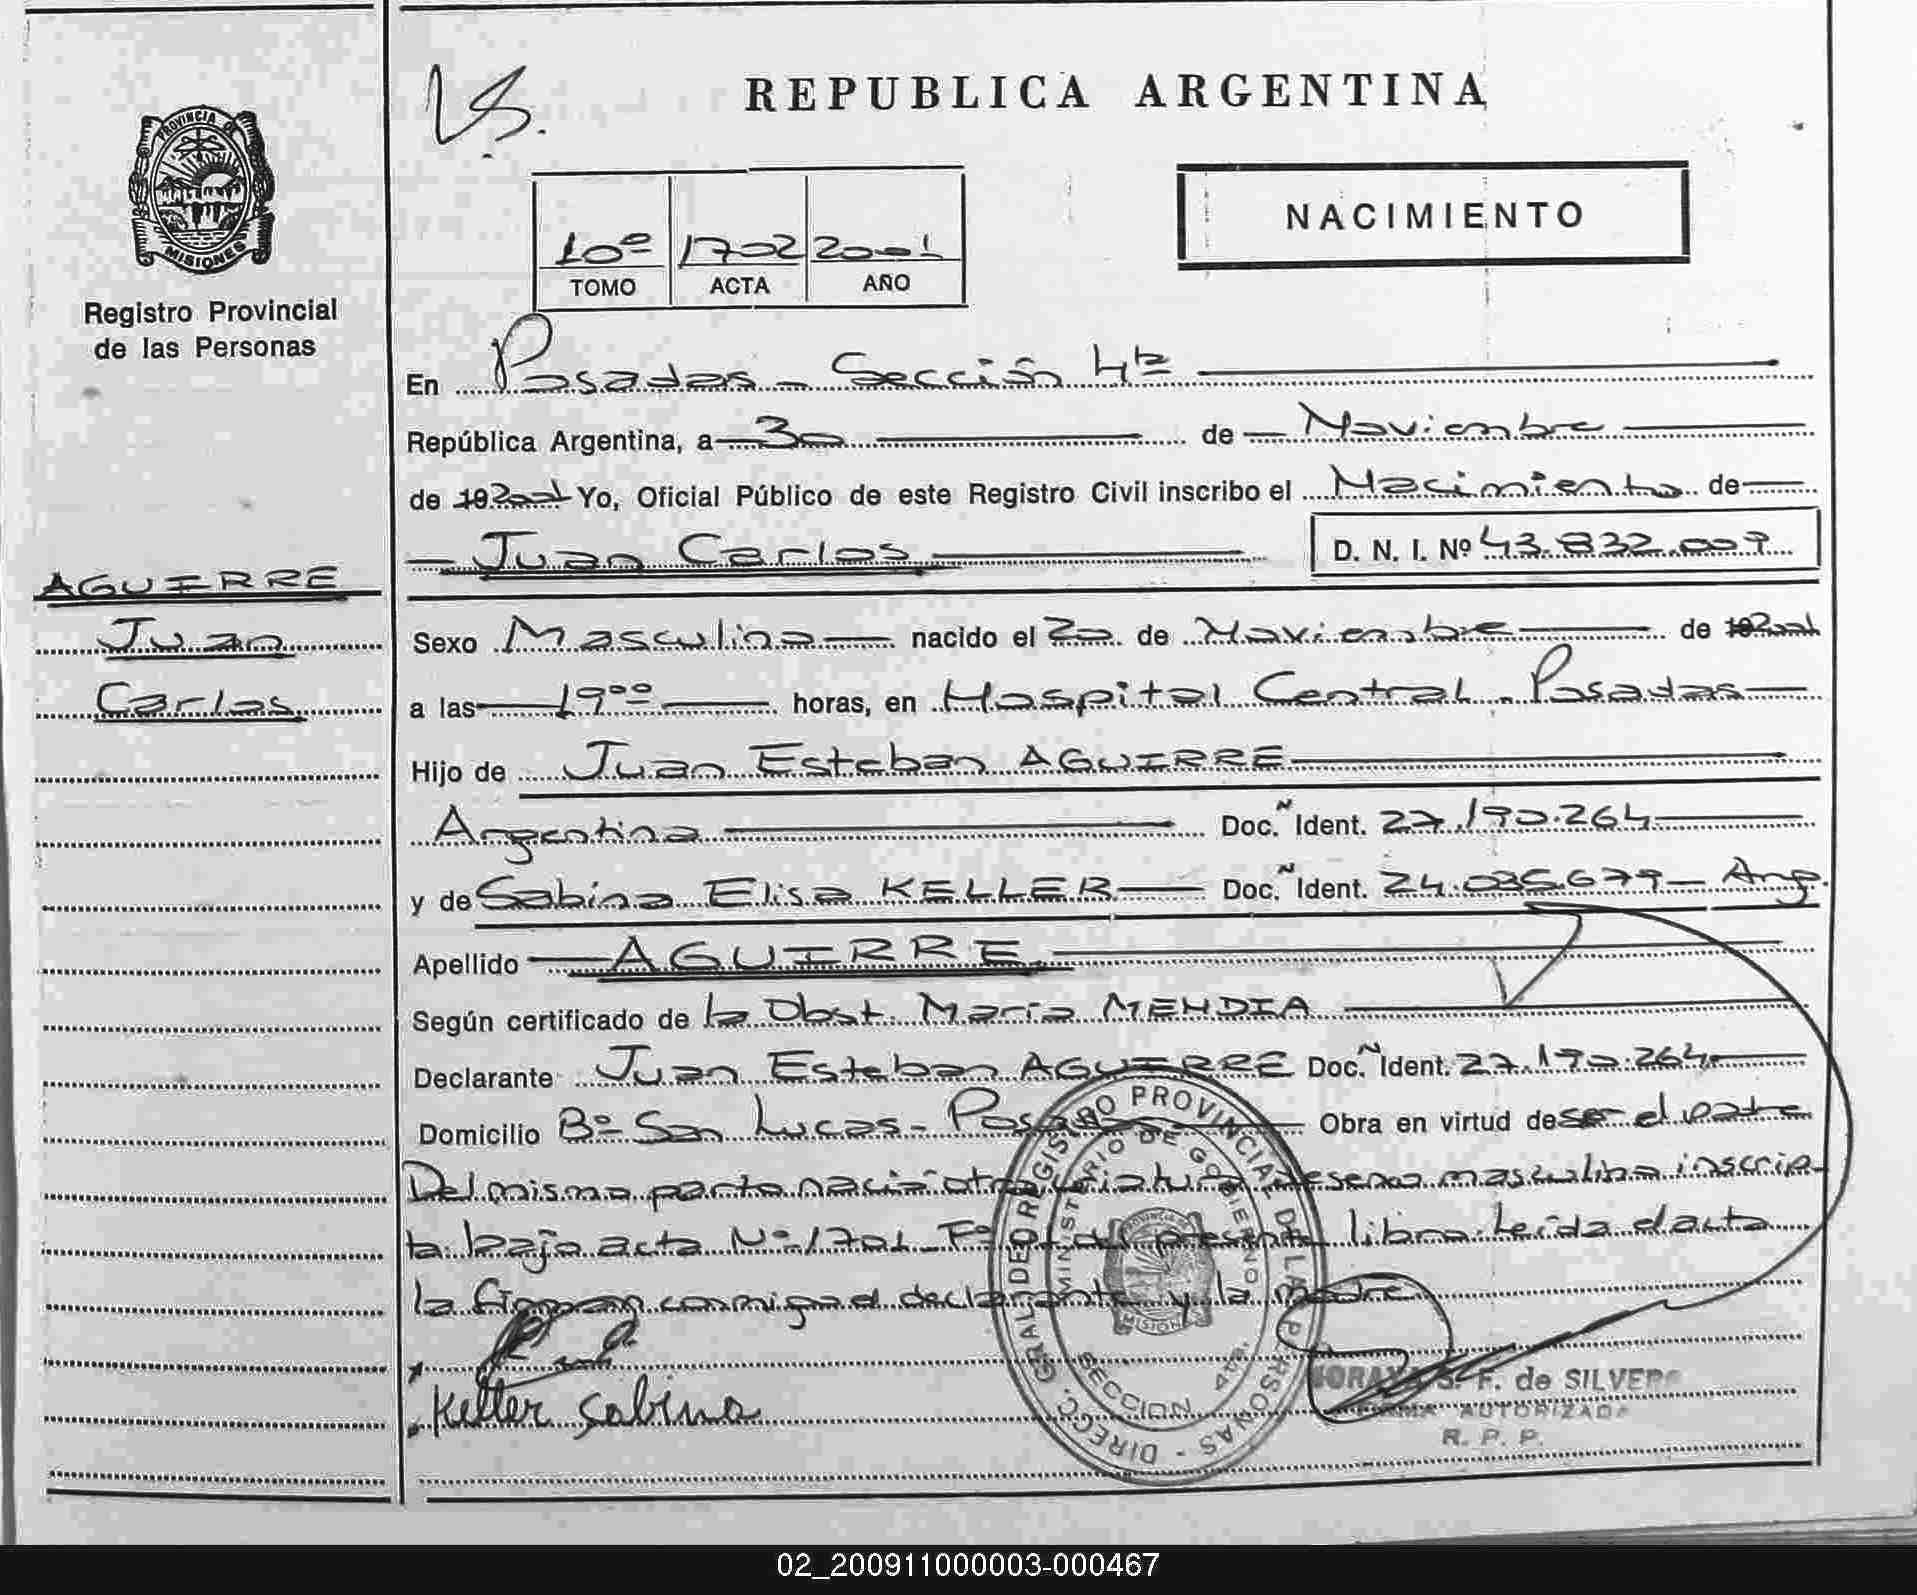 PROVINCIA DE
MISIONES
Registro Provincial
de las Personas
AGUIRRE
Juan
Carlos
REPUBLICA ARGENTINA
NACIMIENTO
10º 1702 2001
TOMO ACTA AÑO
En Posadas - Sección 4ta
República Argentina, a 30 de Noviembre
de 192001 Yo, Oficial Público de este Registro Civil inscribo el Nacimiento de
Juan Carlos D. N. I. Nº 43.832.009
Sexo Masculino nacido el 20 de Noviembre de 192001
a las 19⁰⁰ horas, en Hospital Central - Posadas
Hijo de Juan Esteban AGUIRRE
Argentino Doc. Ñ Ident. 27.190.264
y de Sabina Elisa KELLER Doc. Ñ Ident. 24.035.679 - Arg.
Apellido AGUIRRE.
Según certificado de la Obst. María MENDIA
Declarante Juan Esteban AGUIRRE Doc. Ñ Ident. 27.190.264
Domicilio Bº San Lucas - Posadas Obra en virtud de ser el padre
Del mismo parto nació otra criatura de sexo masculino inscrip-
ta bajo acta Nº 1701 Fº del presente libro. Leída el acta
la firman conmigo el declarante y la madre
Keller Sabina
DIREC. GRAL DE REGISTRO PROVINCIAL DE LAS PERSONAS
MINISTERIO DE GOBIERNO
SECCION 4ta.
SORAYA S. F. de SILVERO
FIRMA AUTORIZADA
R. P. P.
02_200911000003-000467